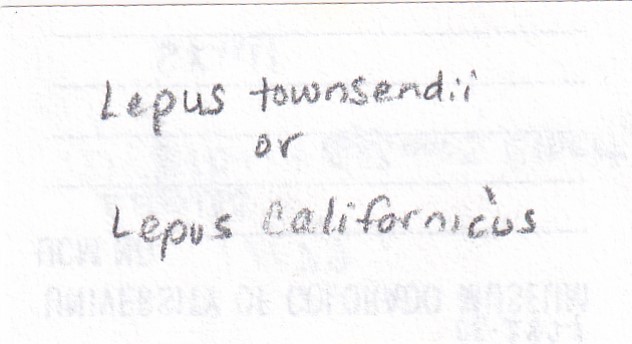 Lepus townsendii
or
Lepus Californicus